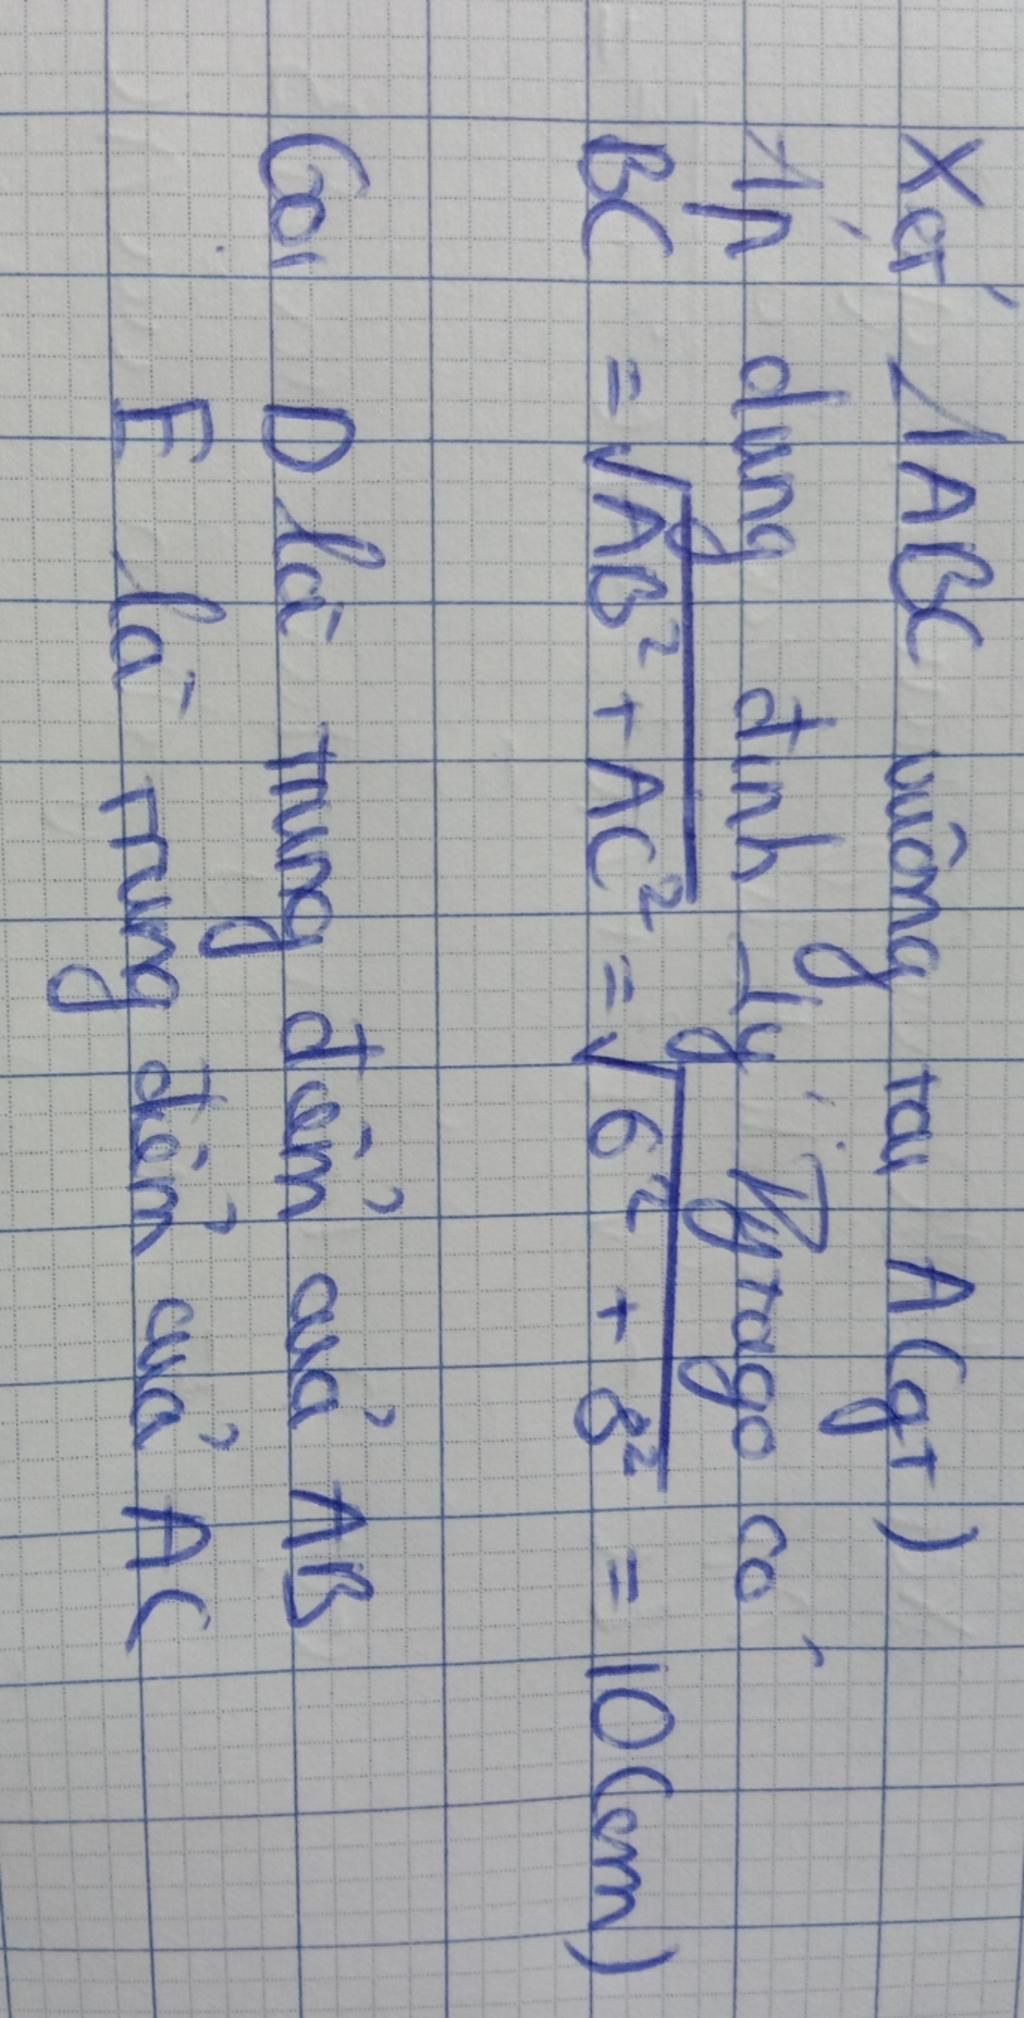 Xét ΔABC vuông tại A (gt)
Áp dụng định lý Pytago có
BC = √AB² + AC² = √6² + 8² = 10 (cm)
Gọi D là trung điểm của AB
E là trung điểm của AC